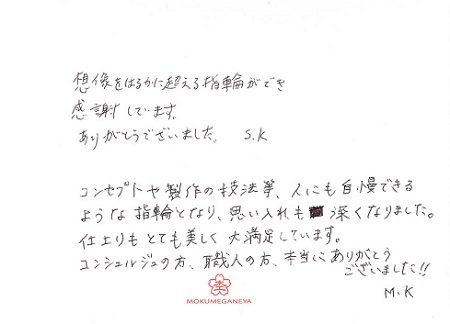 想像をはるかに超える指輪ができ
感謝しています。
ありがとうございました。 S.K
コンセプトや製作の技法等、人にも自慢できる
ような指輪となり、思い入れも深くなりました。
仕上りもとても美しく大満足しています。
コンシェルジュの方、職人の方、本当にありがとう
ございました!!
M.K
MOKUMEGANEYA